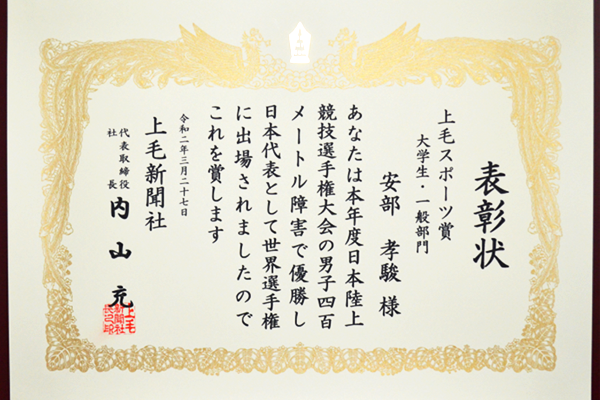 表彰状
上毛スポーツ賞
大学生・一般部門
安部 孝駿 様
あなたは本年度日本陸上
競技選手権大会の男子四百
メートル障害で優勝し
日本代表として世界選手権
に出場されましたので
これを賞します
令和二年三月二十七日
上毛新聞社
代表取締役
社長
内山 充
上毛
新聞社